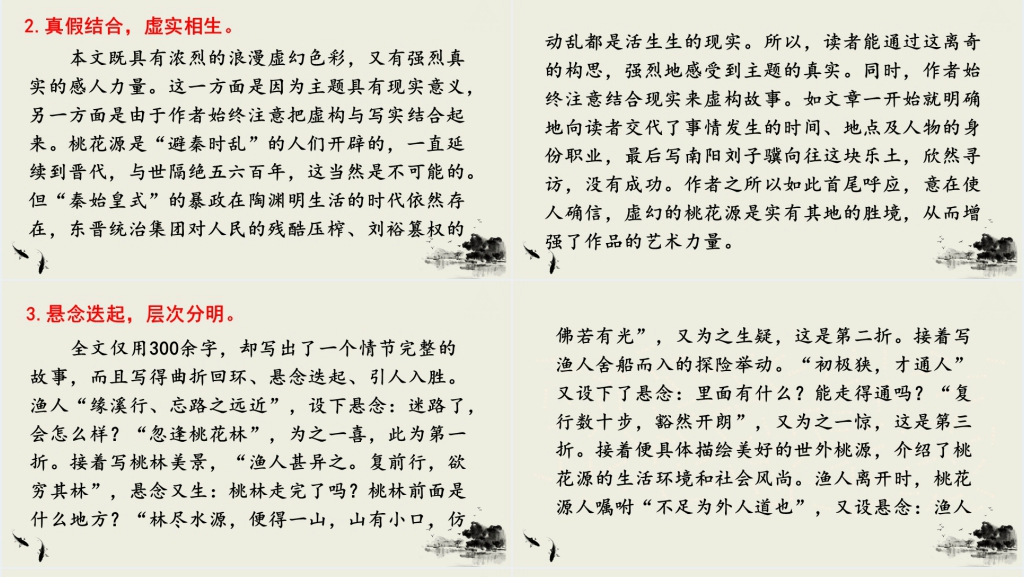 2.真假结合，虚实相生。
本文既具有浓烈的浪漫虚幻色彩，又有强烈真
实的感人力量。这一方面是因为主题具有现实意义，
另一方面是由于作者始终注意把虚构与写实结合起
来。桃花源是“避秦时乱”的人们开辟的，一直延
续到晋代，与世隔绝五六百年，这当然是不可能的。
但“秦始皇式”的暴政在陶渊明生活的时代依然存
在，东晋统治集团对人民的残酷压榨、刘裕篡权的
动乱都是活生生的现实。所以，读者能通过这离奇
的构思，强烈地感受到主题的真实。同时，作者始
终注意结合现实来虚构故事。如文章一开始就明确
地向读者交代了事情发生的时间、地点及人物的身
份职业，最后写南阳刘子骥向往这块乐土，欣然寻
访，没有成功。作者之所以如此首尾呼应，意在使
人确信，虚幻的桃花源是实有其地的胜境，从而增
强了作品的艺术力量。
3.悬念迭起，层次分明。
全文仅用300余字，却写出了一个情节完整的
故事，而且写得曲折回环、悬念迭起、引人入胜。
渔人“缘溪行、忘路之远近”，设下悬念：迷路了，
会怎么样？“忽逢桃花林”，为之一喜，此为第一
折。接着写桃林美景，“渔人甚异之。复前行，欲
穷其林”，悬念又生：桃林走完了吗？桃林前面是
什么地方？“林尽水源，便得一山，山有小口，仿
佛若有光”，又为之生疑，这是第二折。接着写
渔人舍船而入的探险举动。“初极狭，才通人”
又设下了悬念：里面有什么？能走得通吗？“复
行数十步，豁然开朗”，又为之一惊，这是第三
折。接着便具体描绘美好的世外桃源，介绍了桃
花源的生活环境和社会风尚。渔人离开时，桃花
源人嘱咐“不足为外人道也”，又设悬念：渔人